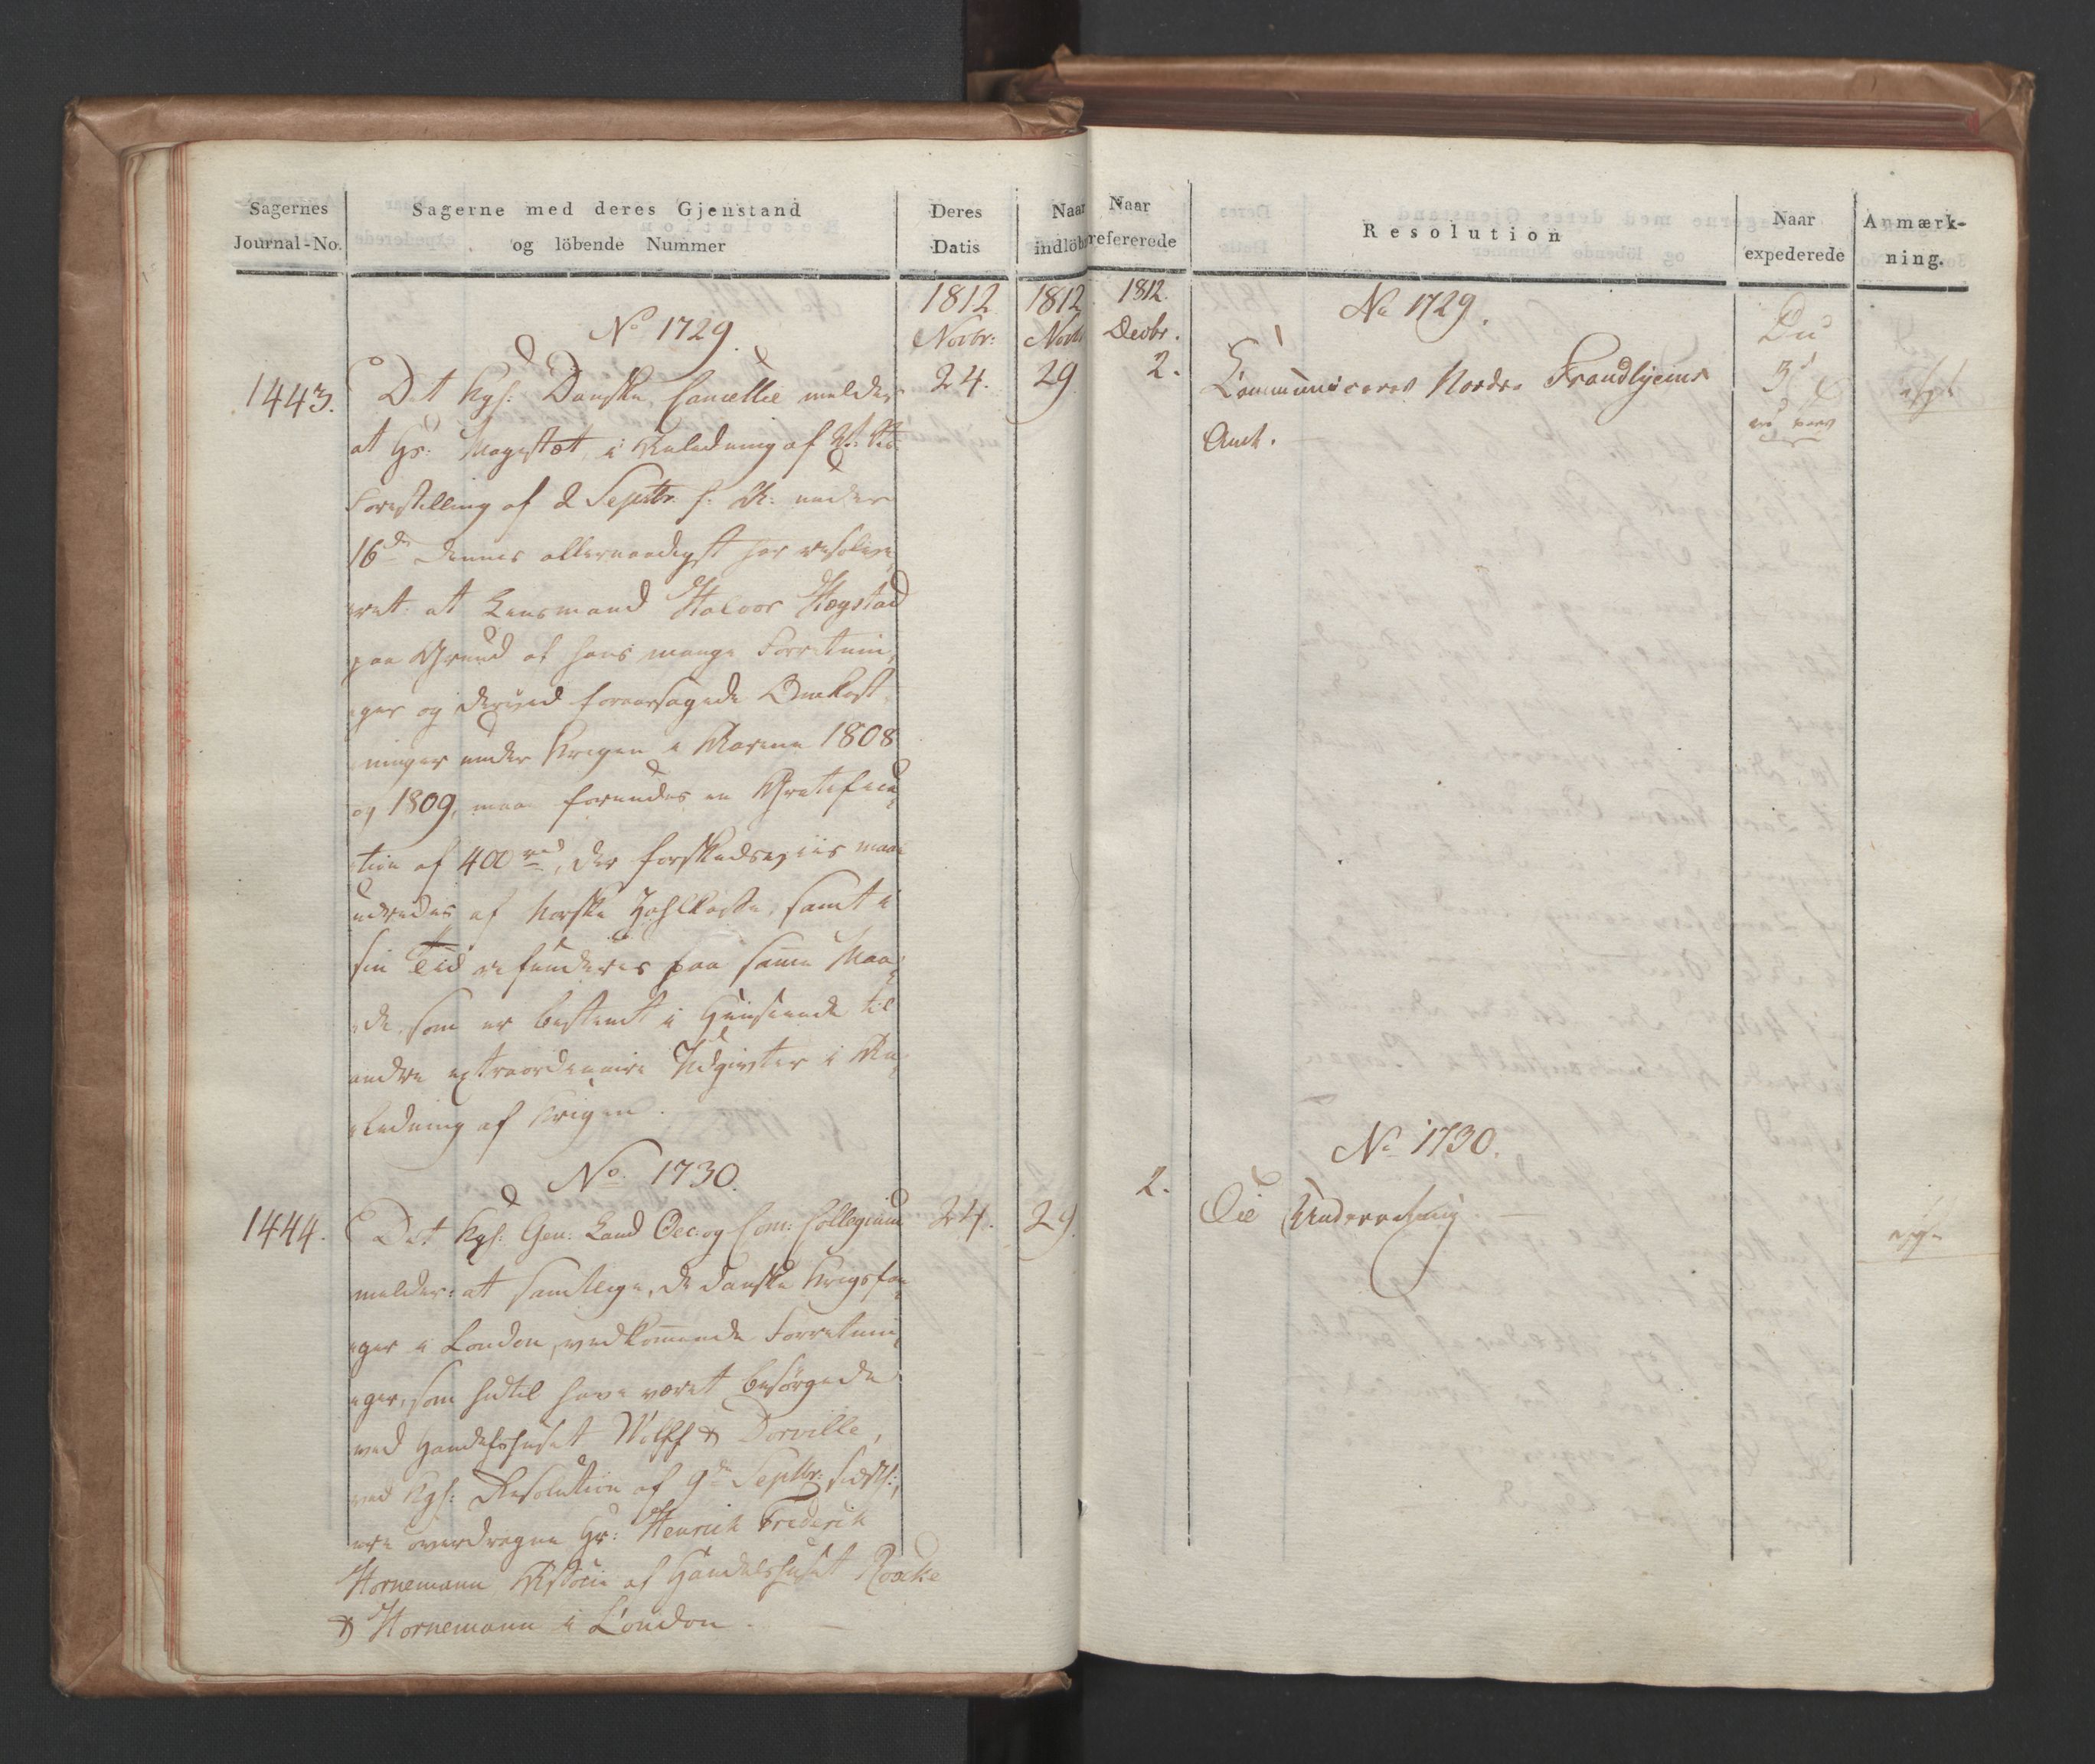 Sagernes
Journal-No.
Sagerne med deres Gjenstand
og löbende Nummer
Deres
Datis
Naar
indlöb
1812
Novbr:
1812
Novbr
No 1729.
1443.
24.
29
Det kgl: Danske Cancellie melder
at Hs: Magestæt, i Anledning af
Forestilling af 2 Septbr: f: A: under
16de dennes allernaadigst har resolve
ret at Lensmand Halvor Hegstad
paa Grund af hans mange Forretnin,
ger og derved foraarsagede Omkost
ninger under Krigen i Aarene 1808
og 1809, maa forundes en Gratifica,
tion af 400 rd, der forskudsviis maa
udredes af Norske Zahlkasse, samt i
sin Tid refunderes paa same Maa,
de, som er bestemt i Henseende til
andre extraordinaire Udgivter i An,
ledning af Krigen.
No. 1730.
1444.
24.
29.
Det kgl: Gen: Land Oec: og Com: Collegium
melder: at samtlige, de danske Krigsfan,
ger i London, vedkomende Forretnin,
ger, som hidtil have været besørgede
ved Handelshuset Wolff & Dorville,
ved kgl: Resolution af 9de Septbr: sidstl:,
ere overdragne Hr: Henrich Frederik
Hornemann Associe af Handelshuset Roacke
& Hornemann i London.
Naar
refererede
Resolution
Naar
expederede
Anmærk-
ning.
1812.
Decbr.
2.
No 1729.
Communiceres Nordre Trondhjems
Amt.
Du
3
No 1730.
2.
Til Underretning.